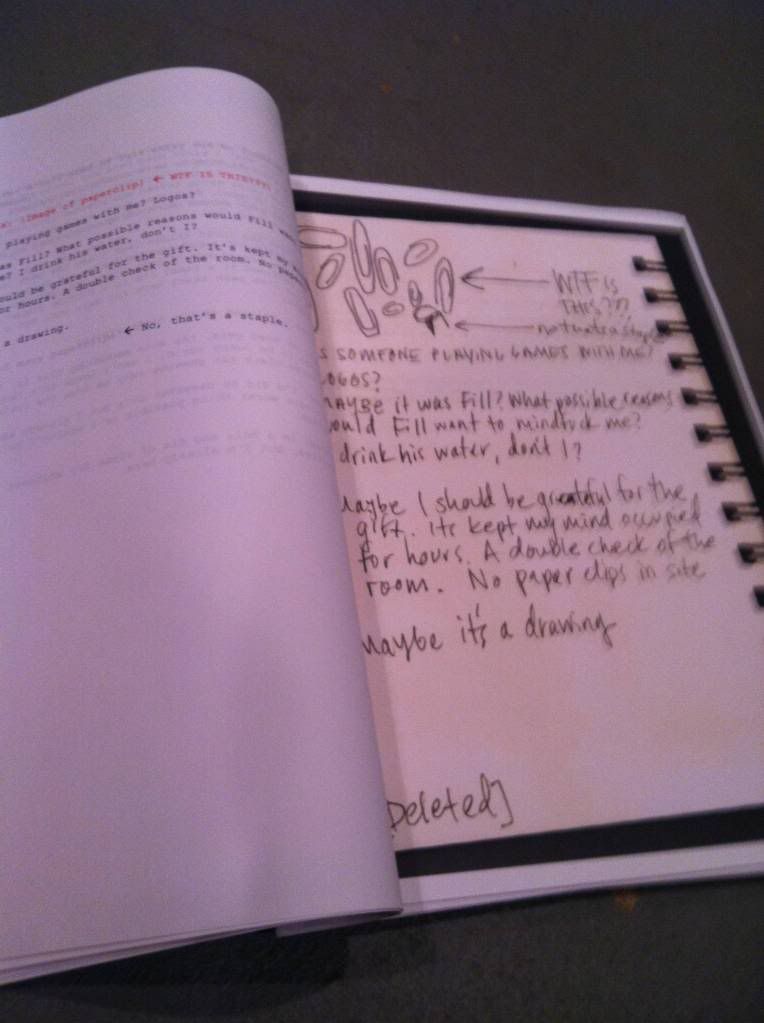 (Image of paperclip) ← WTF IS THIS???
playing games with me? Logos?
as Fill? What possible reasons would Fill
me? I drink his water, don't I?
ould be grateful for the gift. It's kept my
or hours. A double check of the room. No paper
a drawing.
← No, that's a staple.
WTF is
THIS???
not that a staple
S SOMEONE PLAYING GAMES WITH ME?
LOGOS?
MAYBE it was Fill? What possible reasons
ould Fill want to mindfuck me?
drink his water, don't I?
Maybe I should be greateful for the
gift. Its kept my mind occupied
for hours. A double check of the
room. No paper clips in site
Maybe it's a drawing
Deleted]